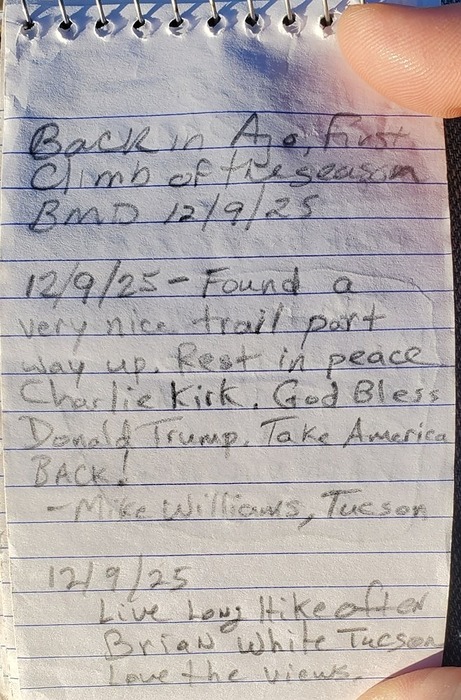 Back in Ajo, First
Climb of the season
BMD 12/9/25
12/9/25 - Found a
very nice trail part
way up. Rest in peace
Charlie Kirk. God Bless
Donald Trump. Take America
BACK!
- Mike Williams, Tucson
12/9/25
Live Long Hike often
Brian White Tucson
Love the views.